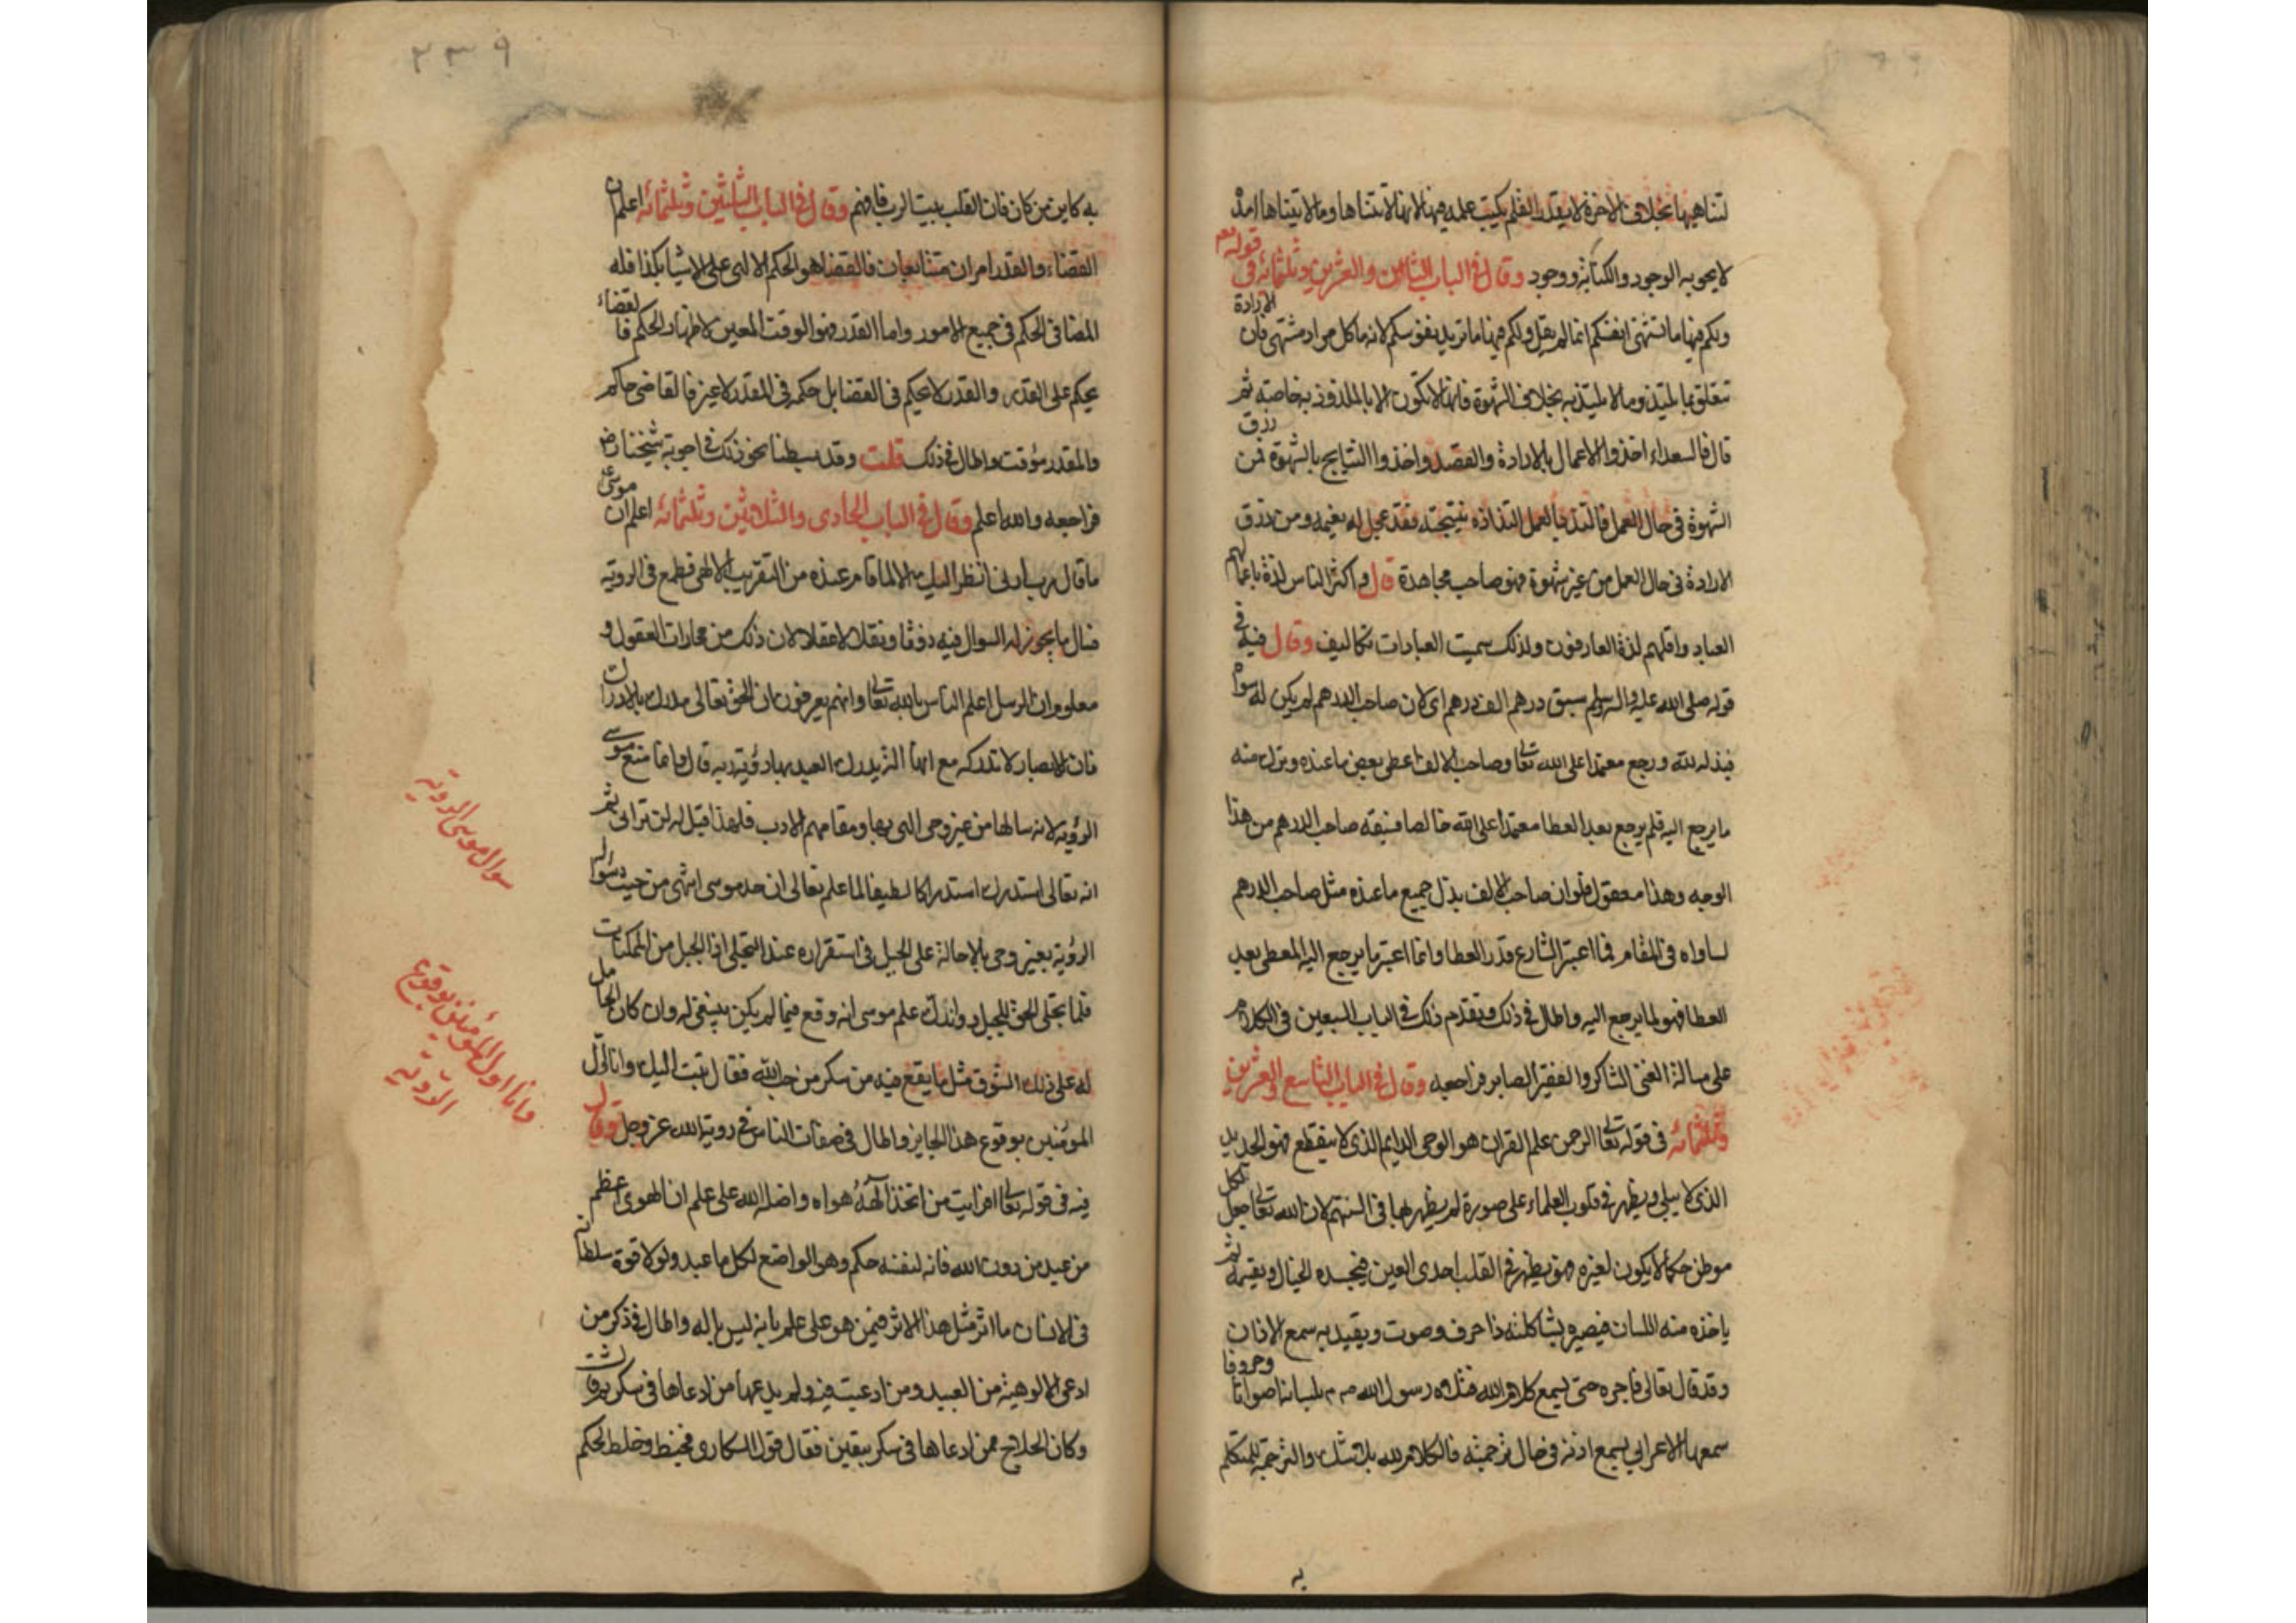 لتناهيها بخلاف الاخرة لا يقدر القلم يكتب علمه فيها لانها لا تتناها وما لا يتناها امده
لا يحويه الوجود والكتابة وجود وقال في الباب الثامن والعشرين وثلثمائة في قوله تعالى
ولكم فيها ما تشتهى انفسكم انما لم يقل ولكم فيها ما تريد نفوسكم لانه ما كل مراد مشتهى فان الارادة
تتعلق بما يلتذ وما لا يلتذ به بخلاف الشهوة فانها لا تكون الا بالملذوذ به خاصة ثم
قال فالسعداء اخذوا الاعمال بالارادة والقصد واخذوا النتايج بالشهوة فمن رزق
الشهوة في حال العمل فالتذ بالعمل التذاذه بنتيجته فقد عجل له نعيمه ومن رزق
الارادة في حال العمل من غير شهوة فهو صاحب مجاهدة قال واكثر الناس لذة باعمالهم
العباد واقلهم لذة العارفون ولذلك سميت العبادات تكاليف وقال فيه في
قوله صلى الله عليه واله وسلم سبق درهم الف درهم اى لان صاحب الدرهم لم يكن له سواه
فبذله لله ورجع معتمدا على الله تعالى وصاحب الالف اعطى بعض ما عنده وترك منه
ما يرجع اليه فلم يرجع بعد العطا معتمدا على الله خالصا فسبقه صاحب الدرهم من هذا
الوجه وهذا معقول فلو ان صاحب الالف بذل جميع ما عنده مثل صاحب الدرهم
لساواه في المقام فما اعتبر الشارع قدر العطا وانما اعتبر ما يرجع اليه المعطى بعد
العطا فهو لما يرجع اليه واطال في ذلك وتقدم ذلك في الباب السبعين في الكلام
على مسالة الغنى الشاكر والفقير الصابر فراجعه وقال في الباب التاسع والعشرين
وثلثمائه في قوله تعالى الرحمن علم القران هو الوحى الدايم الذى لا ينقطع فهو الجديد
الذى لا يبلى ويظهر في قلوب العلماء على صورة لم يظهر بها في السنتهم لان الله تعالى جعل لكل
موطن حكما لا يكون لغيره فهو يظهر في القلب احدى العين فيجسده الخيال ويقيمه ثم
ياخذه منه اللسان فيصيره بشاكلته ذا حرف وصوت ويقيد به سمع الاذان
وقد قال تعالى فاجره حتى يسمع كلام الله فتلاه رسول الله صم بلسانه اصواتا وحروفا
سمعها الاعرابي بسمع اذنه في حال ترجمته فالكلام لله بلا شك والترجمة للمتكلم
به
٢٣٩
به كاين من كان فان القلب بيت الرب فافهم وقال في الباب الثلثين وثلثمائه اعلم ان
القضاء والقدر امران متتابعان فالقضا هو الحكم الالهى على الاشيا بكذا فله
المضا في الحكم في جميع الامور واما القدر فهو الوقت المعين لاظهار الحكم فالقضاء
يحكم على القدر والقدر لا يحكم في القضا بل حكمه في المقدر لا غير فالقاضى حاكم
والمقدر مؤقت واطال في ذلك قلت وقد بسطنا نحو ذلك في اجوبة شيخنا رض
فراجعه والله اعلم وقال في الباب الحادى والثلاثين وثلثمائه اعلم ان موسى ع
ما قال رب ارنى انظر اليك الا لما قام عنده من التقريب الالهى فطمع في الروية
فسال ما يجوز له السوال فيه ذوقا ونقلا لا عقلا لان ذلك من محارات العقول و
معلوم ان الرسل اعلم الناس بالله تعالى وانهم يعرفون ان الحق تعالى مدرك بالادراك
فان الابصار لا تدركه مع انها الة يدرك العبد بها رؤية ربه قال وانما منع موسى
الرؤية لانه سالها من غير وحى الهى بها ومقامهم الادب فلهذا قيل له لن ترانى ثم
انه تعالى استدرك استدراكا لطيفا لما علم تعالى ان حد موسى انتهى من حيث سواله
الرؤية بغير وحى بالاحالة على الجبل في استقراره عند التجلى اذ الجبل من الممكنات
فلما تجلى الحق للجبل واندك علم موسى انه وقع فيما لم يكن ينبغى له وان كان الحامل
له على ذلك الشوق مثل ما يقع فيه من سكر من حب الله فقال تبت اليك وانا اول
المومنين بوقوع هذا الجايز واطال في صفات الناس في روية الله عز وجل وقال
فيه في قوله تعالى افرايت من اتخذ الهه هواه واضله الله على علم ان الهوى اعظم
من عبد من دون الله فانه لنفسه حكم وهو الواضع لكل ما عبد ولولا قوة سلطانه
في الانسان ما اثر مثل هذا الاثر فيمن هو على علم بانه ليس باله واطال في ذكر من
ادعى الالوهية من العبيد ومن ادعيت فيه ولم يدعها من ادعاها في سكر
وكان الحلاج ممن ادعاها في سكر بيقين فقال قول السكارى فخبط وخلط لحكم
سوال موسى الروية
وانا اول المؤمنين بوقوع
الروية